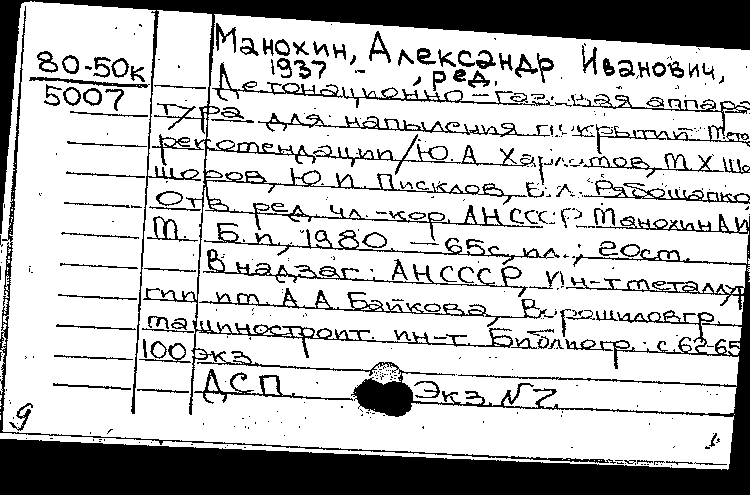 80-50к
5007
Манохин, Александр Иванович,
1937 - , ред.
Детонационно-газовая аппара
тура для напыления покрытий. Мето
рекомендации/Ю.А. Харламов, М.Х. Шо
шоров, Ю.И. Писклов, Е.Л. Рябошапко,
Отв. ред. чл.-кор. АН СССР Манохин А.И
М. Б.и, 1980. - 65с, ил.; 20см.
В надзаг: АН СССР, Ин-т металлур
гии им. А.А. Байкова, Ворошиловгр.
машиностроит. ин-т. Библиогр.: с.62-65
100 экз.
ДСП. Экз. №7.
9